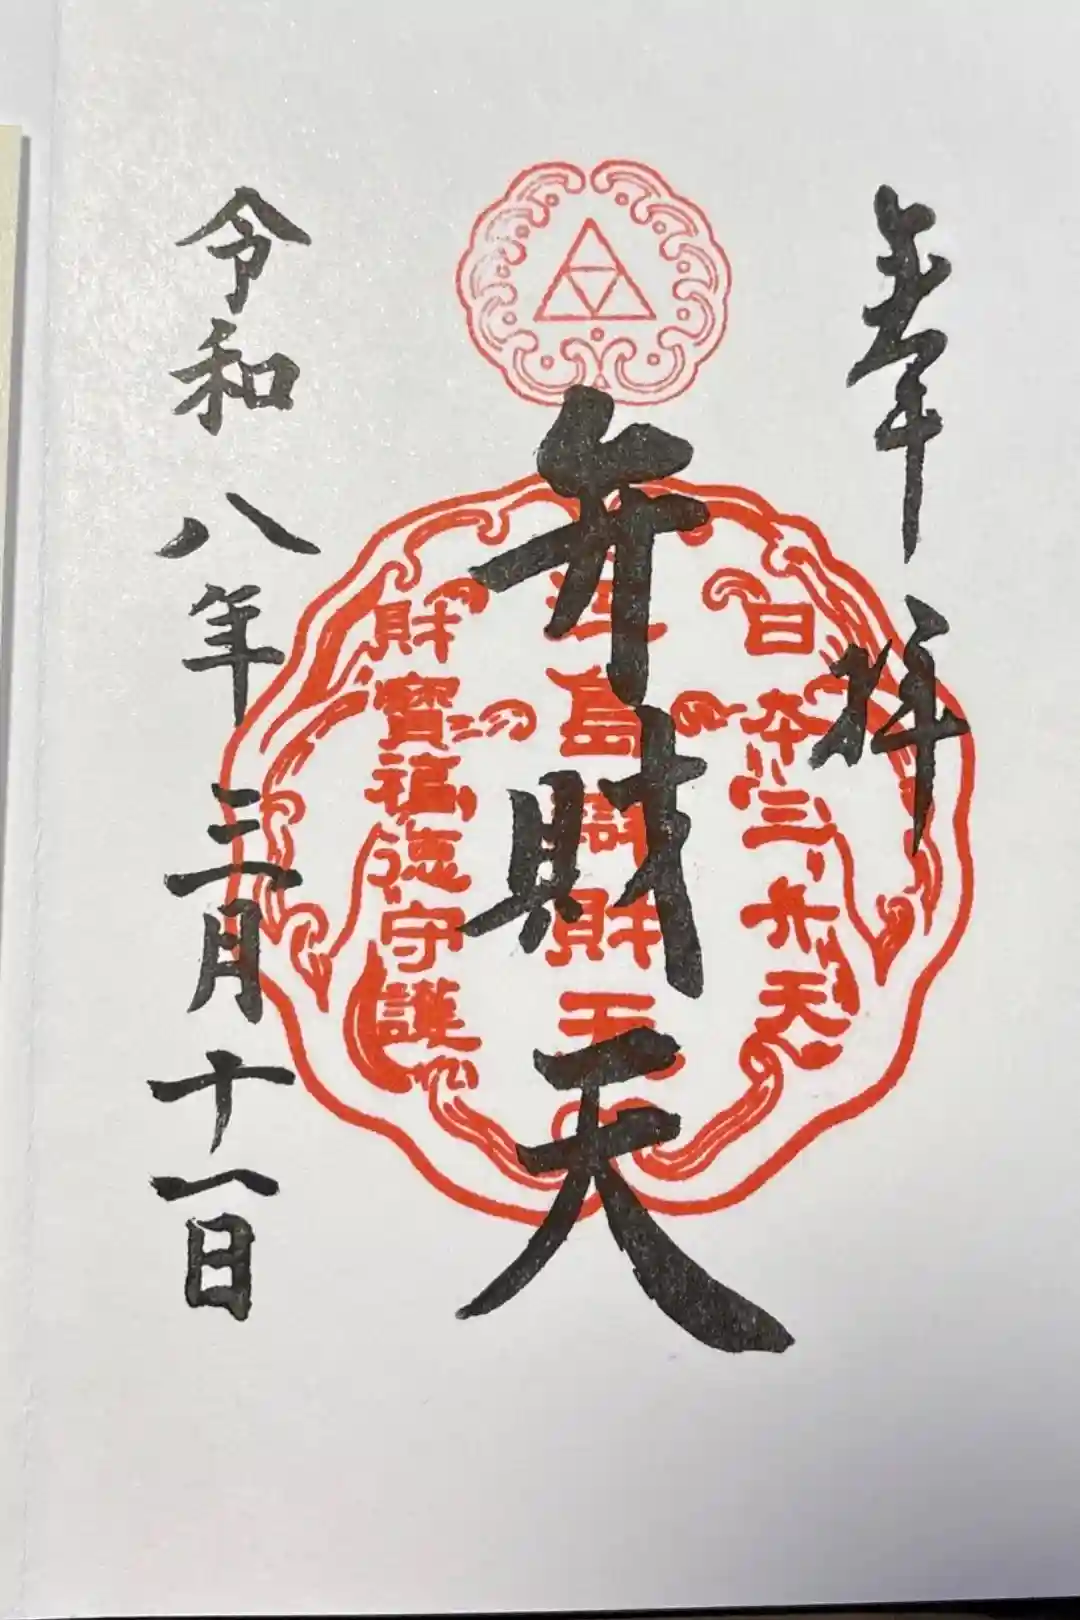 奉拝
日本三弁天
江島辯財天
財寶福徳守護
弁財天
令和八年三月十一日